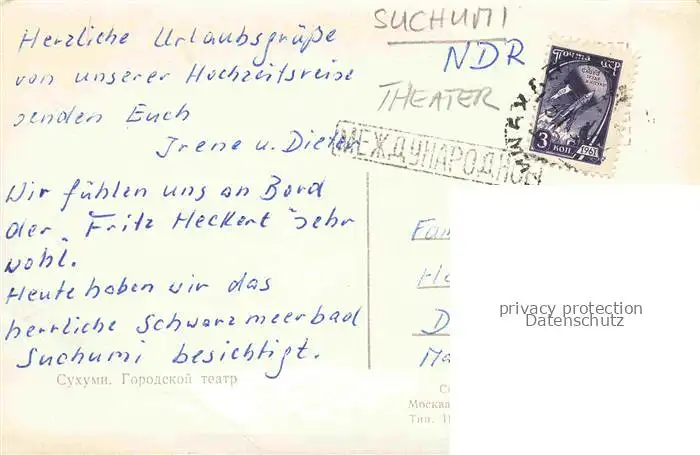 Herzliche Urlaubsgrüße
von unserer Hochzeitsreise
senden Euch
Irene u. Dieter
Wir fühlen uns an Bord
der "Fritz Heckert" sehr
wohl.
Heute haben wir das
herrliche Schwarzmeerbad
Suchumi besichtigt.
Сухуми. Городской театр
SUCHUMI
NDR
THEATER
Почта СССР
3 коп.
1961
МЕЖДУНАРОДНОЕ
Fam
Ha
D
Ma
Москва
Тип.
privacy protection
Datenschutz